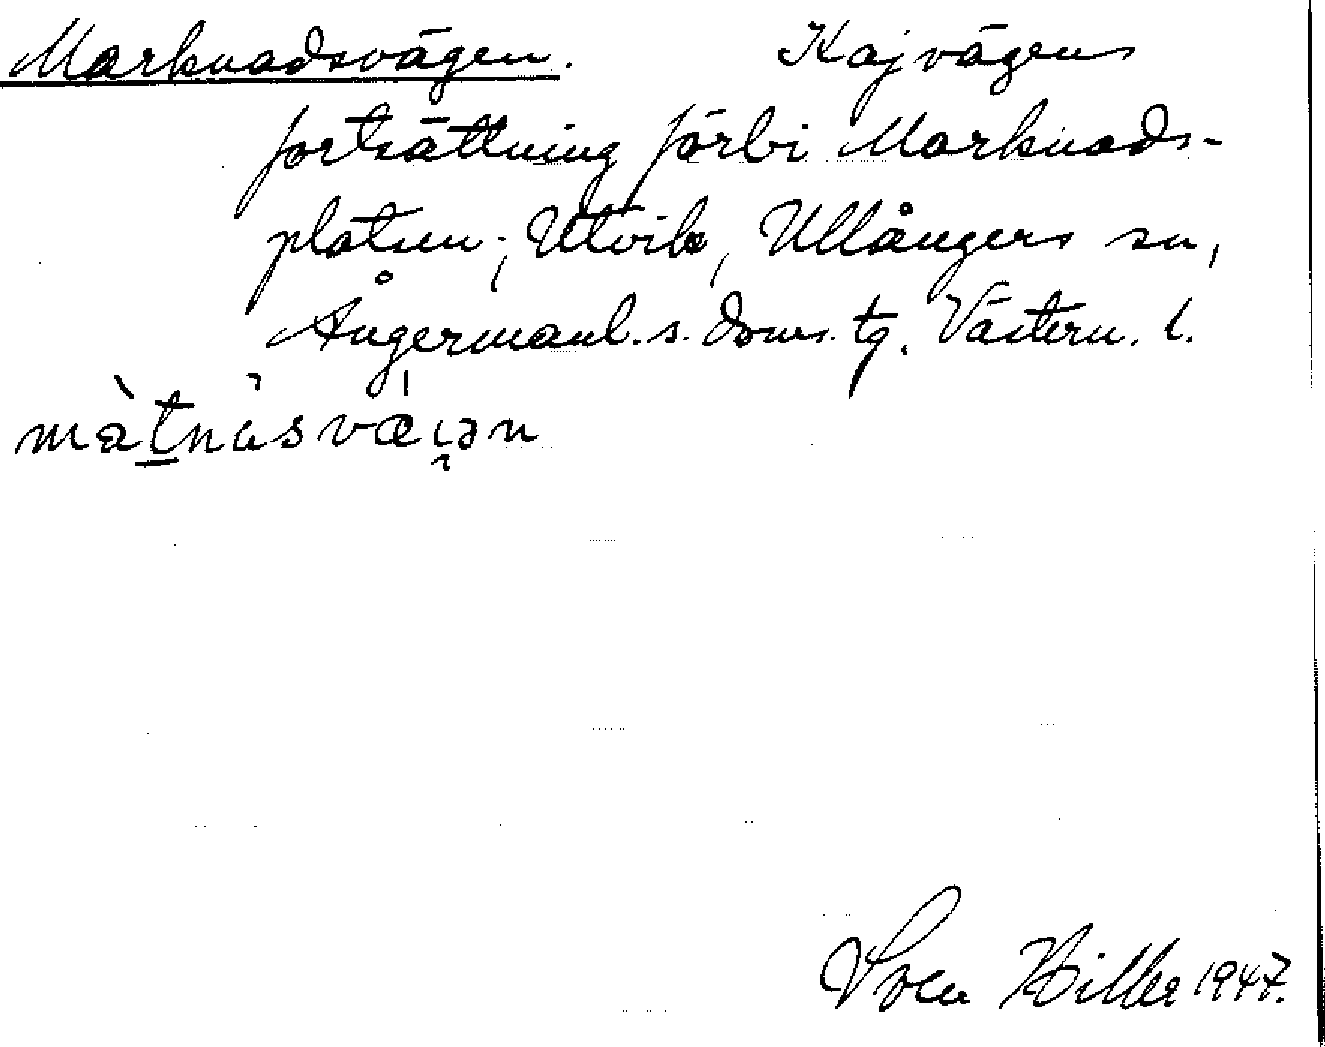 Marknadsvägen. Kajvägens
fortsättning förbi Marknads-
platsen; Utvik, Ullångers sn,
Ångermanl. s. doms. tg. Västern. l.
màtnàsvæ̍ɩ̯ən
Sven Hiller 1947.